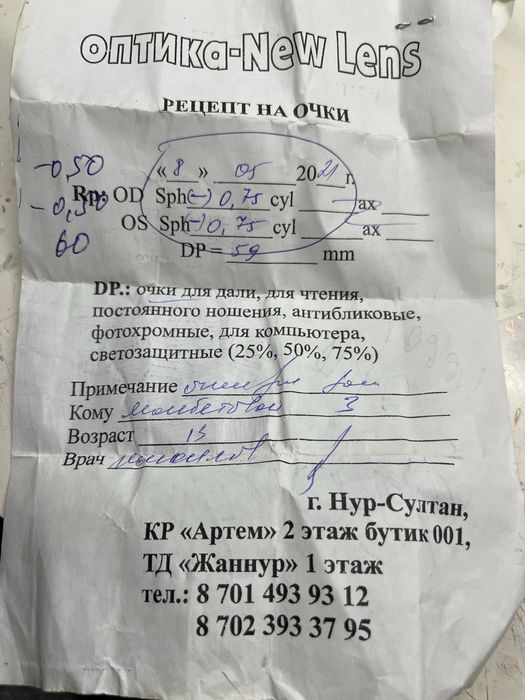 оптика-New Lens
РЕЦЕПТ НА ОЧКИ
-0,50 « 8 » 05 2021 г.
-0,50 Rp: OD Sph (-) 0,75 cyl — ax
60 OS Sph (-) 0,75 cyl — ax
DP = 59 mm
DP.: очки для дали, для чтения,
постоянного ношения, антибликовые,
фотохромные, для компьютера,
светозащитные (25%, 50%, 75%)
Примечание очки для
Кому З
Возраст
Врач
г. Нур-Султан,
КР «Артем» 2 этаж бутик 001,
ТД «Жаннур» 1 этаж
тел.: 8 701 493 93 12
8 702 393 37 95